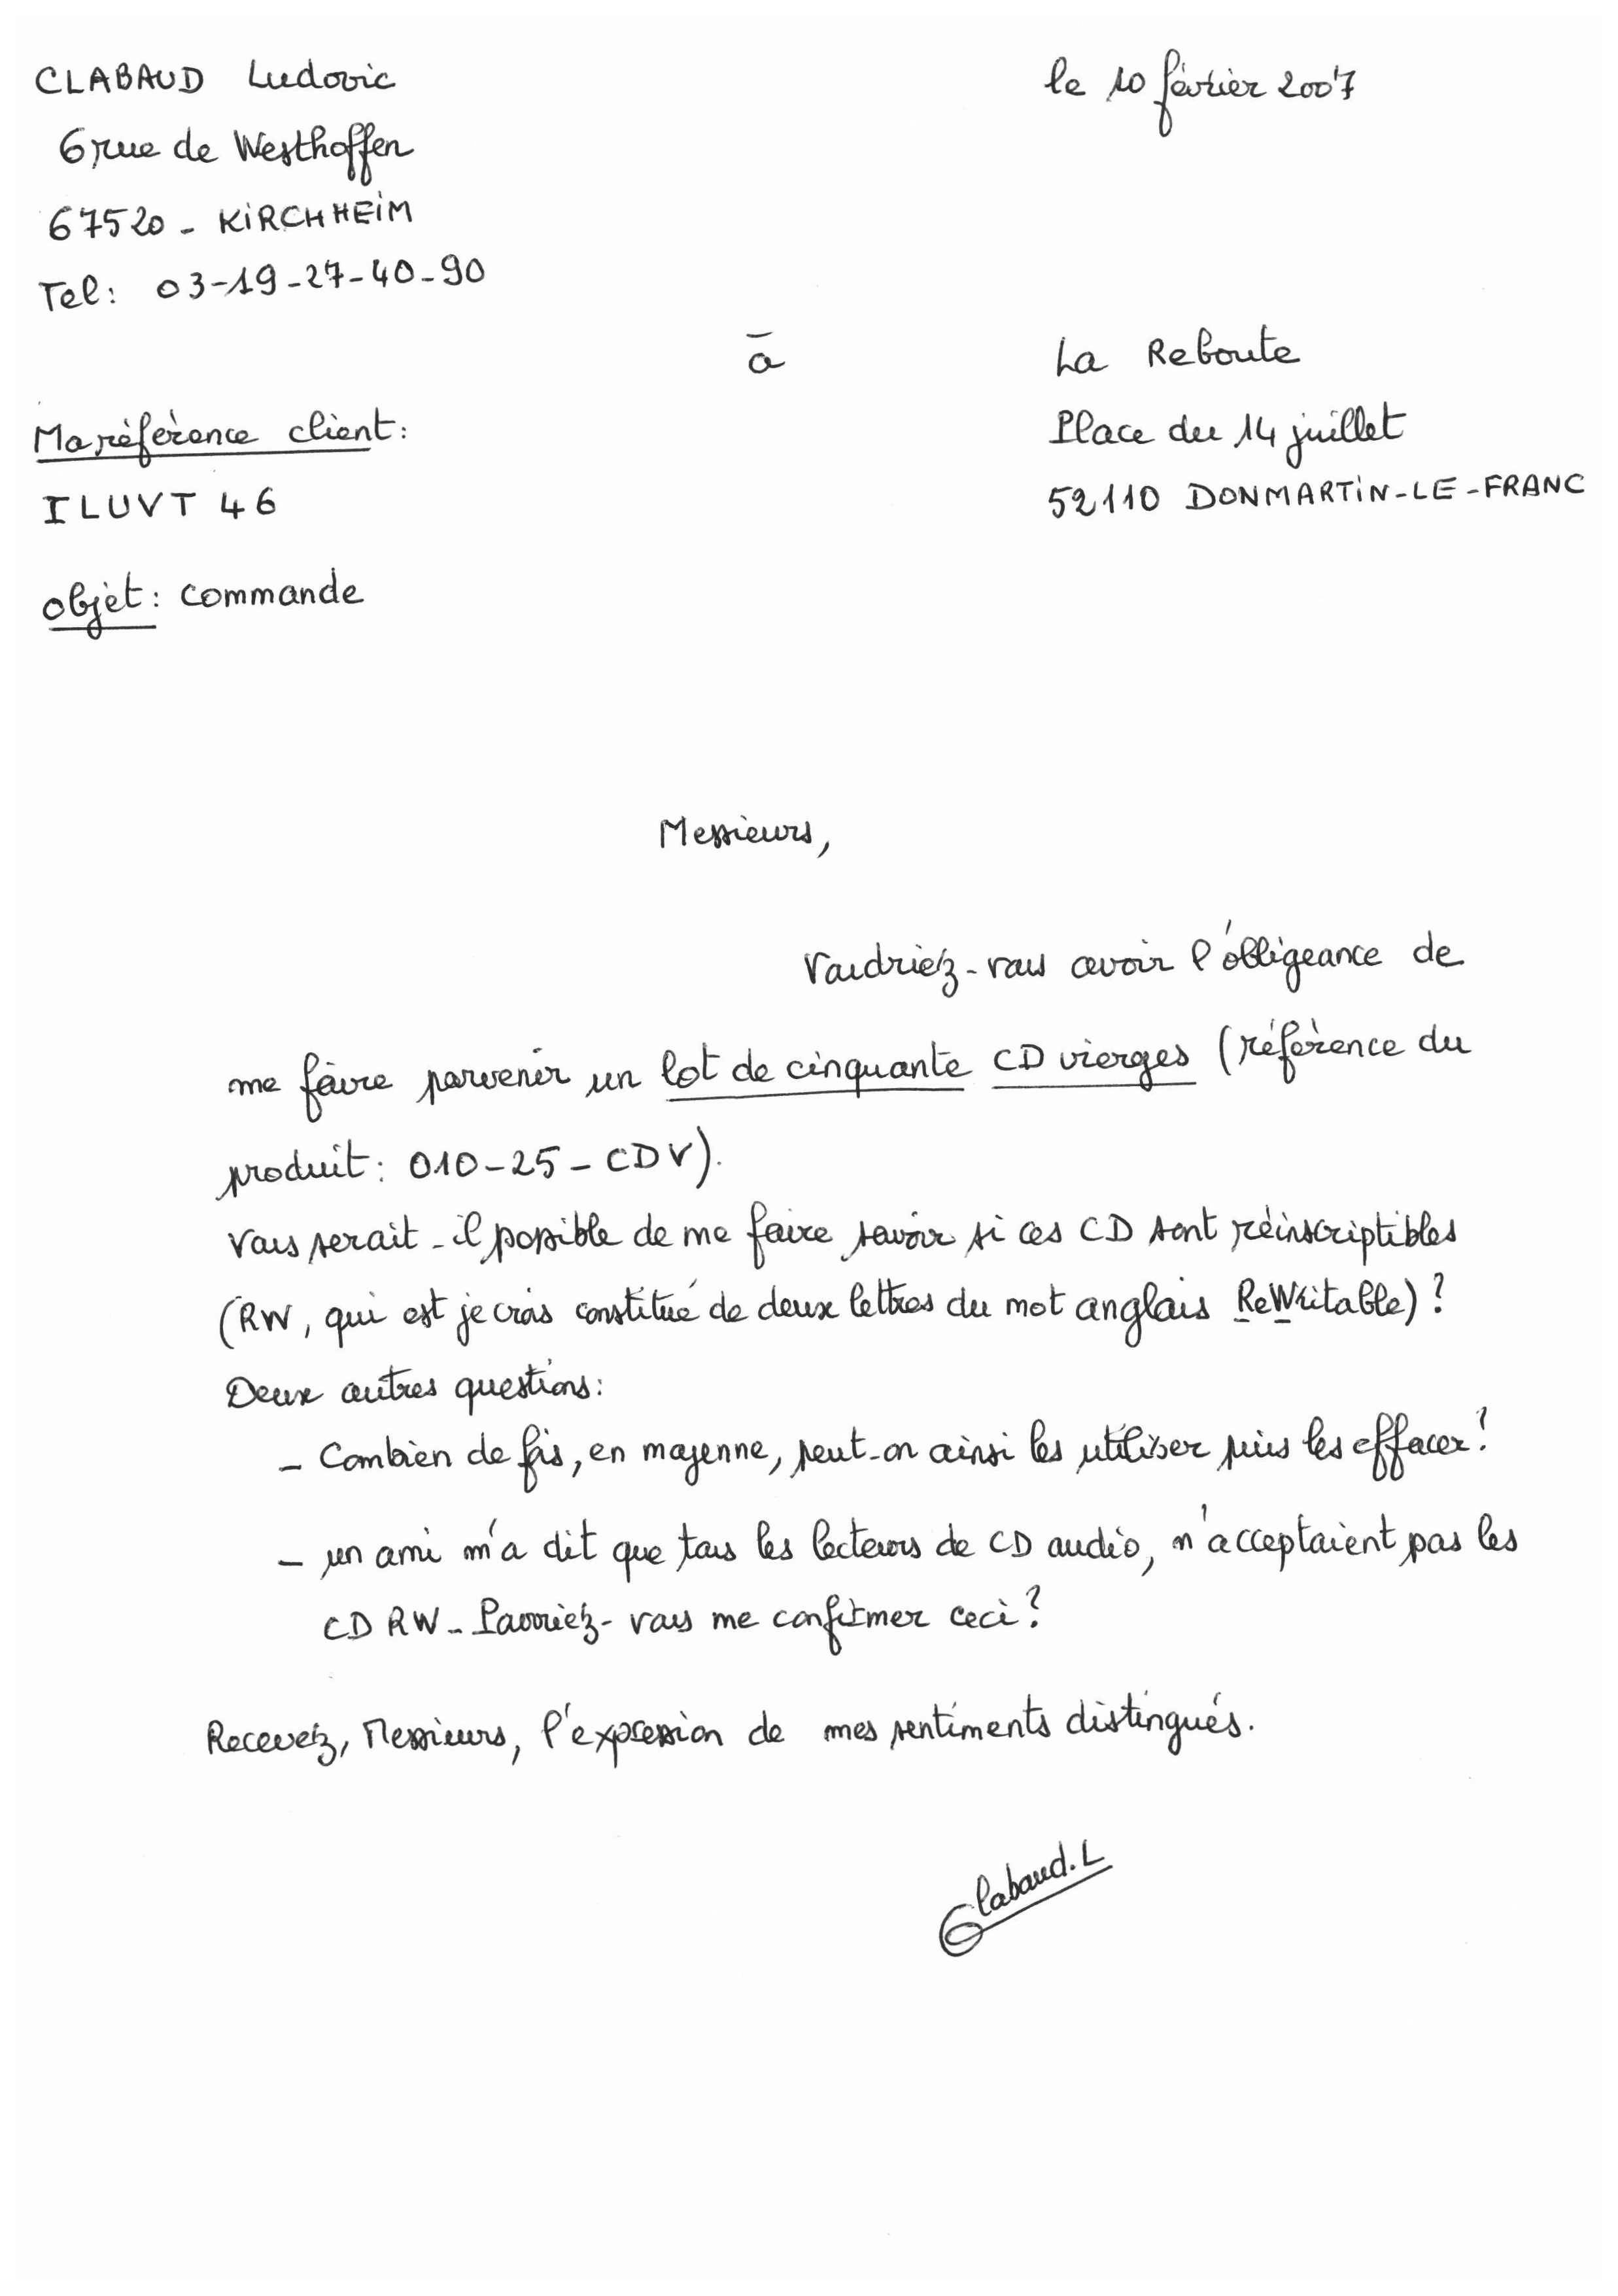 CLABAUD Ludovic
le 10 février 2007
6 rue de Westhoffen
67520 - KIRCHHEIM
Tel : 03-19-27-40-90
à
La Reboute
Place du 14 juillet
52110 DONMARTIN-LE-FRANC
Ma référence client :
ILUVT 46
objet : commande
Messieurs,
Voudriez-vous avoir l'obligeance de
me faire parvenir un lot de cinquante CD vierges (référence du
produit : 010-25-CDV).
Vous serait-il possible de me faire savoir si ces CD sont réinscriptibles
(RW, qui est je crois constitué de deux lettres du mot anglais ReWritable) ?
Deux autres questions :
- Combien de fois, en moyenne, peut-on ainsi les utiliser puis les effacer ?
- un ami m'a dit que tous les lecteurs de CD audio, n'acceptaient pas les
CD RW - Pourriez-vous me confirmer ceci ?
Recevez, Messieurs, l'expression de mes sentiments distingués.
Clabaud.L